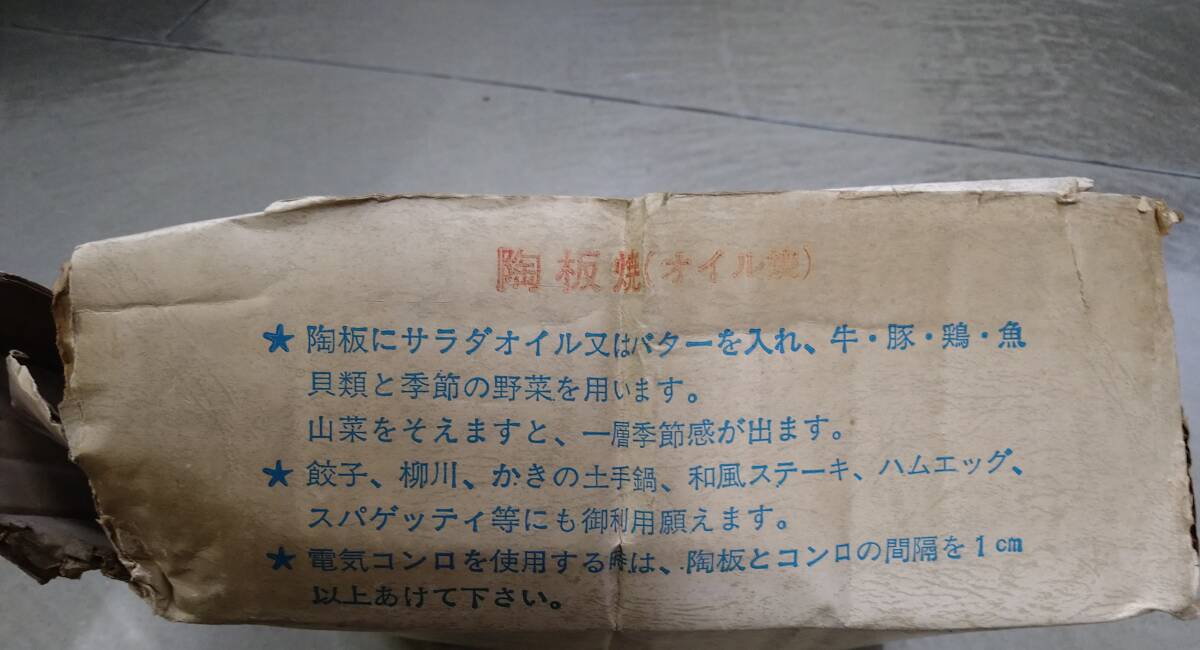 陶板焼(オイル焼)
★ 陶板にサラダオイル又はバターを入れ、牛・豚・鶏・魚
貝類と季節の野菜を用います。
山菜をそえますと、一層季節感が出ます。
★ 餃子、柳川、かきの土手鍋、和風ステーキ、ハムエッグ、
スパゲッティ等にも御利用願えます。
★ 電気コンロを使用する時は、陶板とコンロの間隔を1cm
以上あけて下さい。